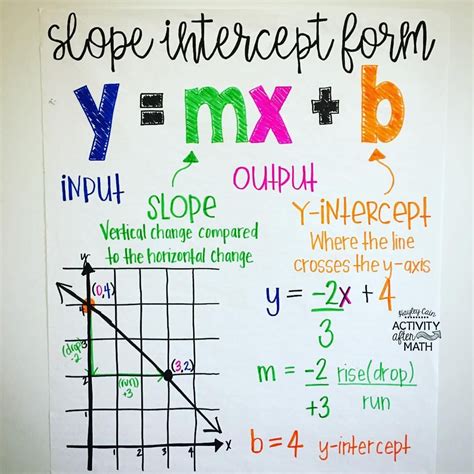 slope intercept form
y = mx + b
INPUT
OUTPUT
SLOPE
Vertical change compared
to the horizontal change
Y-INTERCEPT
Where the line
crosses the y-axis
y
(0,4)
4
3
(drop)
-2
2
(run)
+3
(3,2)
1
1 2 3 4
x
y = -2x + 4
3
Kayley Cain
ACTIVITY
after
MATH
m = -2 rise(drop)
+3 run
b = 4 y-intercept